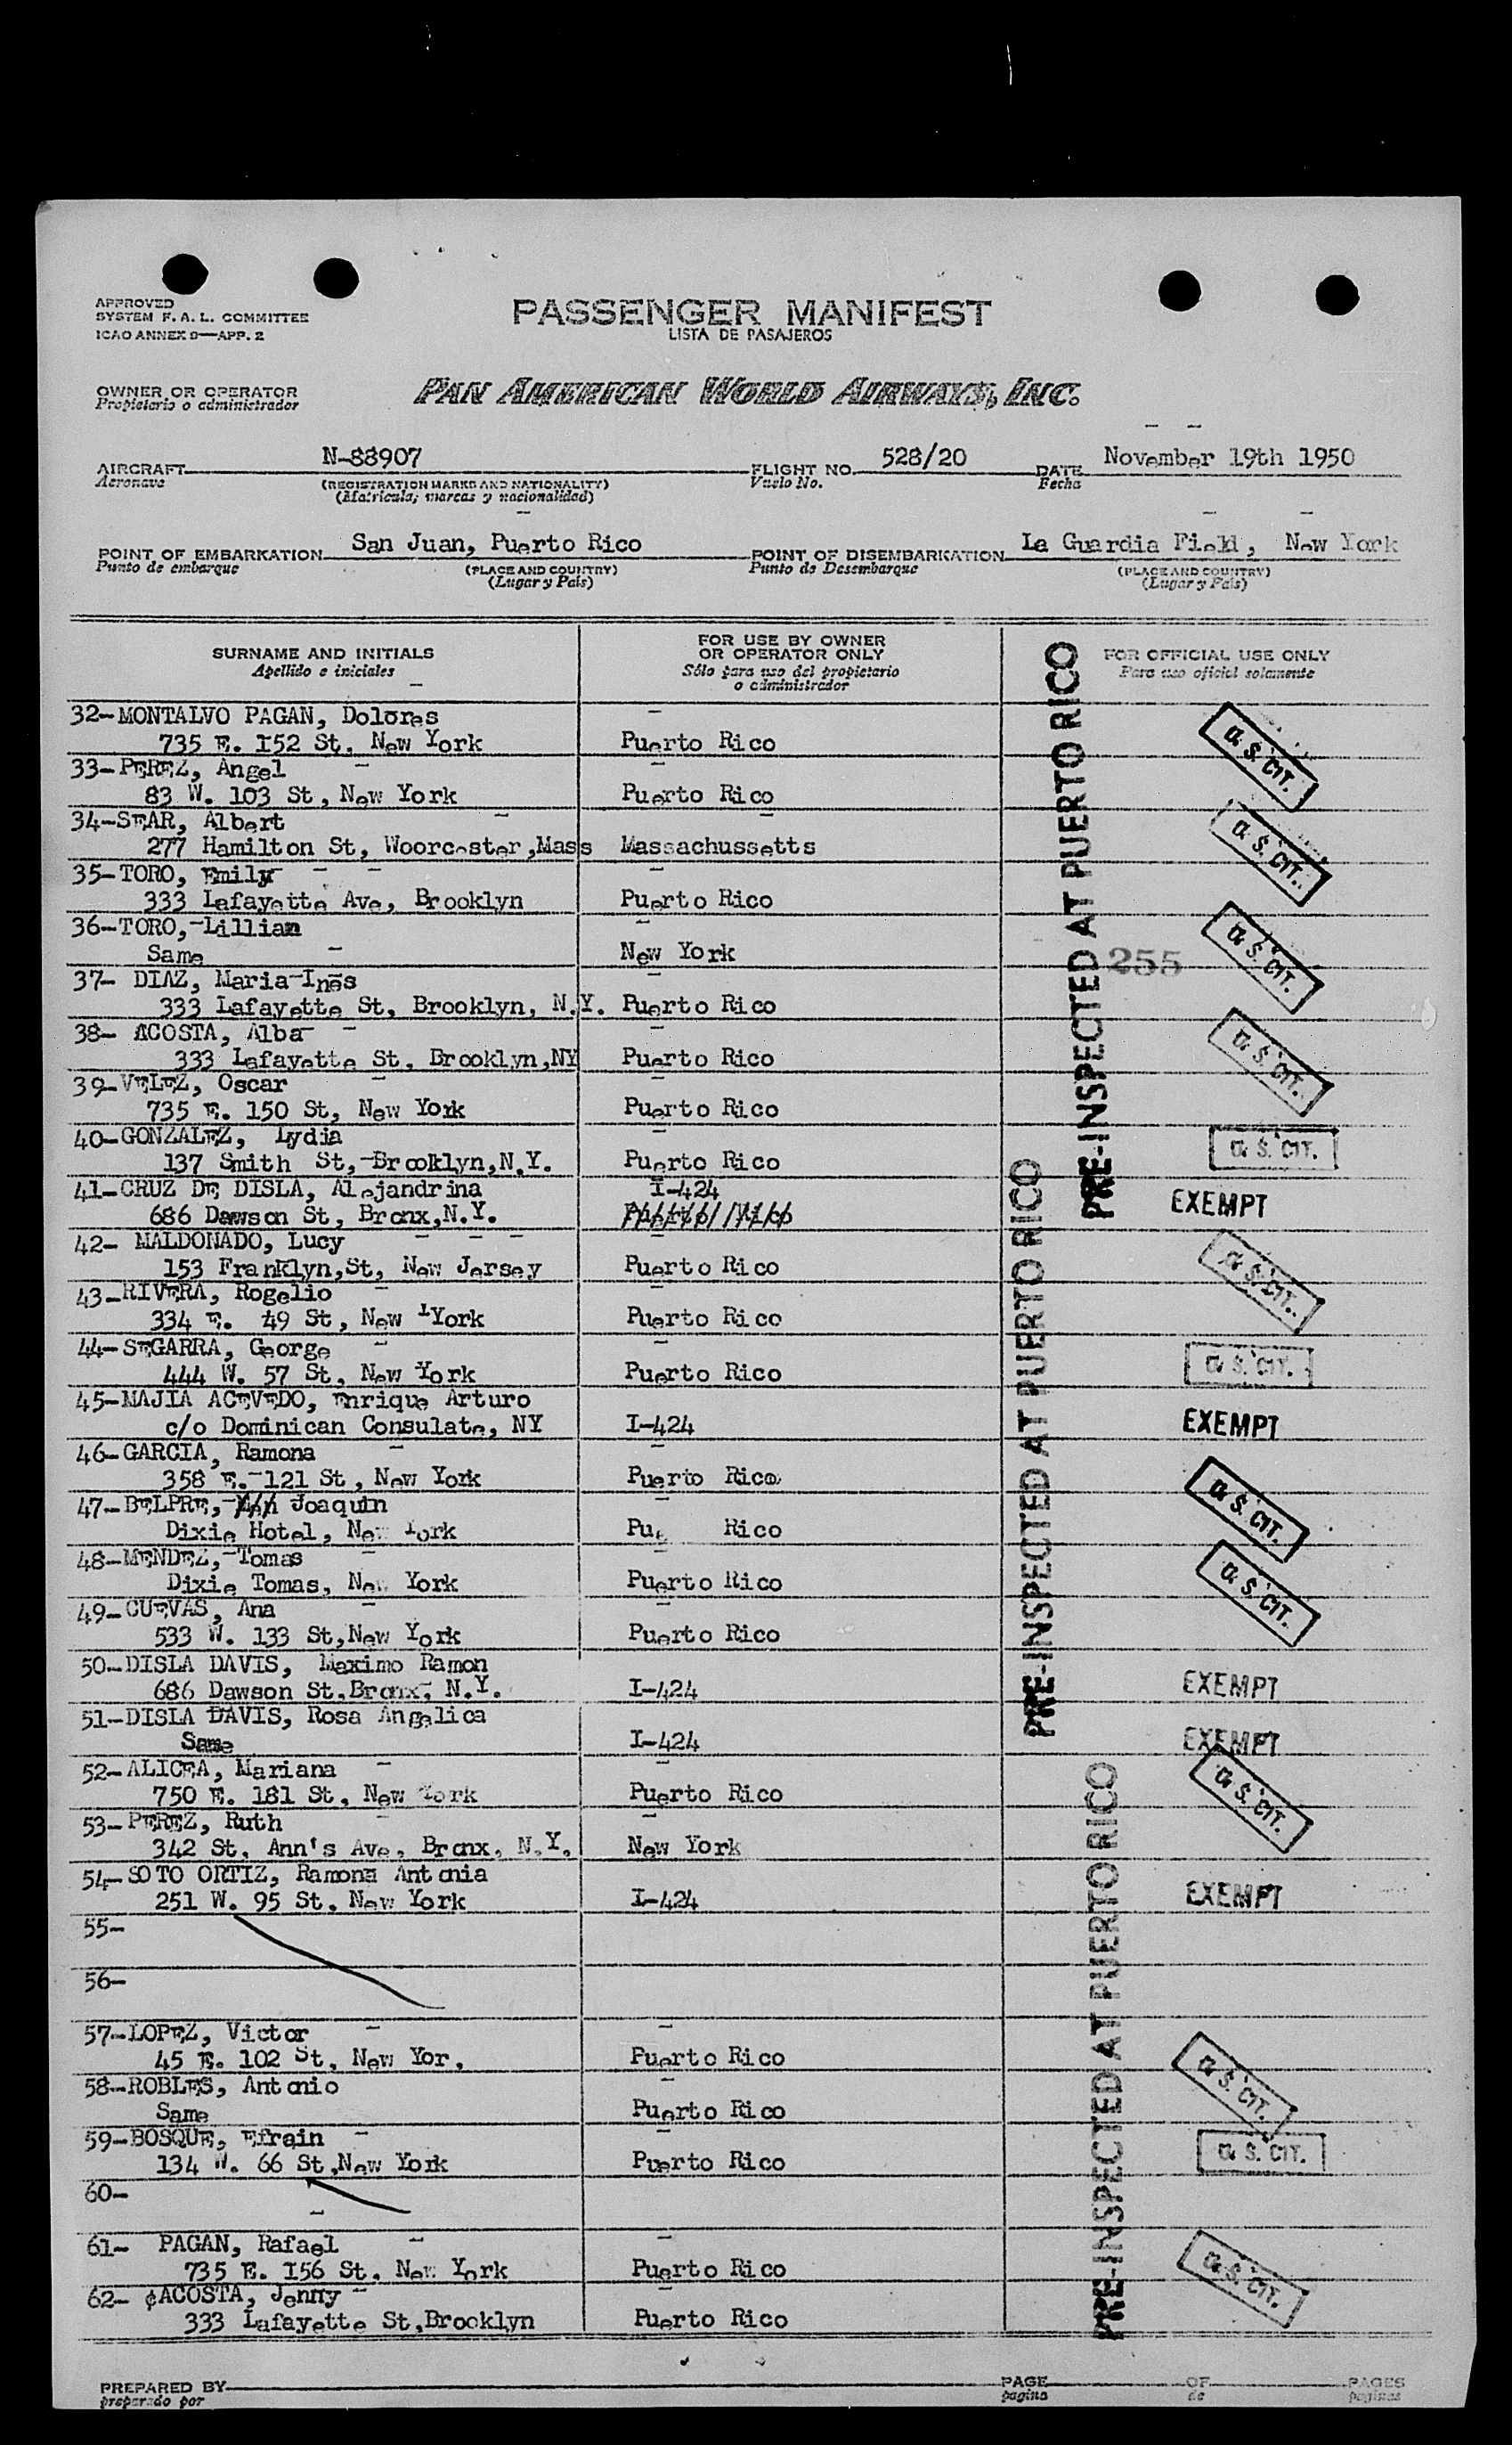 APPROVED
SYSTEM F. A. L. COMMITTEE
ICAO ANNEX 9—APP. 2
PASSENGER MANIFEST
LISTA DE PASAJEROS
OWNER OR OPERATOR
Propietario o administrador
PAN AMERICAN WORLD AIRWAYS, INC.
AIRCRAFT N-88907 FLIGHT NO. 528/20 DATE November 19th 1950
Aeronave (REGISTRATION MARKS AND NATIONALITY) Vuelo No. Fecha
(Matricula; marcas y nacionalidad)
POINT OF EMBARKATION San Juan, Puerto Rico POINT OF DISEMBARKATION La Guardia Field, New York
Punto de embarque (PLACE AND COUNTRY) Punto de Desembarque (PLACE AND COUNTRY)
(Lugar y País) (Lugar y País)
SURNAME AND INITIALS
Apellido e iniciales
FOR USE BY OWNER
OR OPERATOR ONLY
Sólo para uso del propietario
o administrador
FOR OFFICIAL USE ONLY
Para uso oficial solamente
32-MONTALVO PAGAN, Dolores
735 E. 152 St, New York Puerto Rico U. S. CIT.
33-PEREZ, Angel
83 W. 103 St, New York Puerto Rico
34-STAR, Albert
277 Hamilton St, Woorcester,Mass Massachussetts U. S. CIT.
35-TORO, Emily
333 Lafayette Ave, Brooklyn Puerto Rico
36-TORO, Lillian
Same New York U. S. CIT.
255
37- DIAZ, Maria Ines
333 Lafayette St, Brooklyn, N.Y. Puerto Rico
38- ACOSTA, Alba
333 Lafayette St, Brooklyn,NY Puerto Rico U. S. CIT.
39-VELEZ, Oscar
735 E. 150 St, New York Puerto Rico
40-GONZALEZ, Lydia
137 Smith St, Brooklyn,N.Y. Puerto Rico U. S. CIT.
41-CRUZ DE DISLA, Alejandrina I-424
686 Dawson St, Bronx,N.Y. EXEMPT
42- MALDONADO, Lucy
153 Franklyn,St, New Jersey Puerto Rico U. S. CIT.
43-RIVERA, Rogelio
334 E. 49 St, New York Puerto Rico
44-SEGARRA, George
444 W. 57 St, New York Puerto Rico U. S. CIT.
45-MAJIA ACEVEDO, Enrique Arturo
c/o Dominican Consulate, NY I-424 EXEMPT
46-GARCIA, Ramona
358 E. 121 St, New York Puerto Rico
47-BELPRE, Joaquin U. S. CIT.
Dixie Hotel, New York Rico
48-MENDEZ, Tomas
Dixie Tomas, New York Puerto Rico U. S. CIT.
49-CUEVAS, Ana
533 W. 133 St,New York Puerto Rico
50-DISLA DAVIS, Maximo Ramon
686 Dawson St,Bronx, N.Y. I-424 EXEMPT
51-DISLA DAVIS, Rosa Angelica
Same I-424 EXEMPT
52-ALICEA, Mariana
750 E. 181 St, New York Puerto Rico U. S. CIT.
53-PEREZ, Ruth
342 St, Ann's Ave, Bronx, N.Y. New York
54-SOTO ORTIZ, Ramona Antonia
251 W. 95 St, New York I-424 EXEMPT
55-
56-
57-LOPEZ, Victor
45 E. 102 St, New Yor, Puerto Rico U. S. CIT.
58-ROBLES, Antonio
Same Puerto Rico
59-BOSQUE, Efrain
134 W. 66 St,New York Puerto Rico U. S. CIT.
60-
61- PAGAN, Rafael
735 E. 156 St, New York Puerto Rico U. S. CIT.
62- ACOSTA, Jenny
333 Lafayette St,Brooklyn Puerto Rico
PRE-INSPECTED AT PUERTO RICO
PRE-INSPECTED AT PUERTO RICO
PRE-INSPECTED AT PUERTO RICO
PREPARED BY PAGE OF PAGES
preparado por pagina de paginas